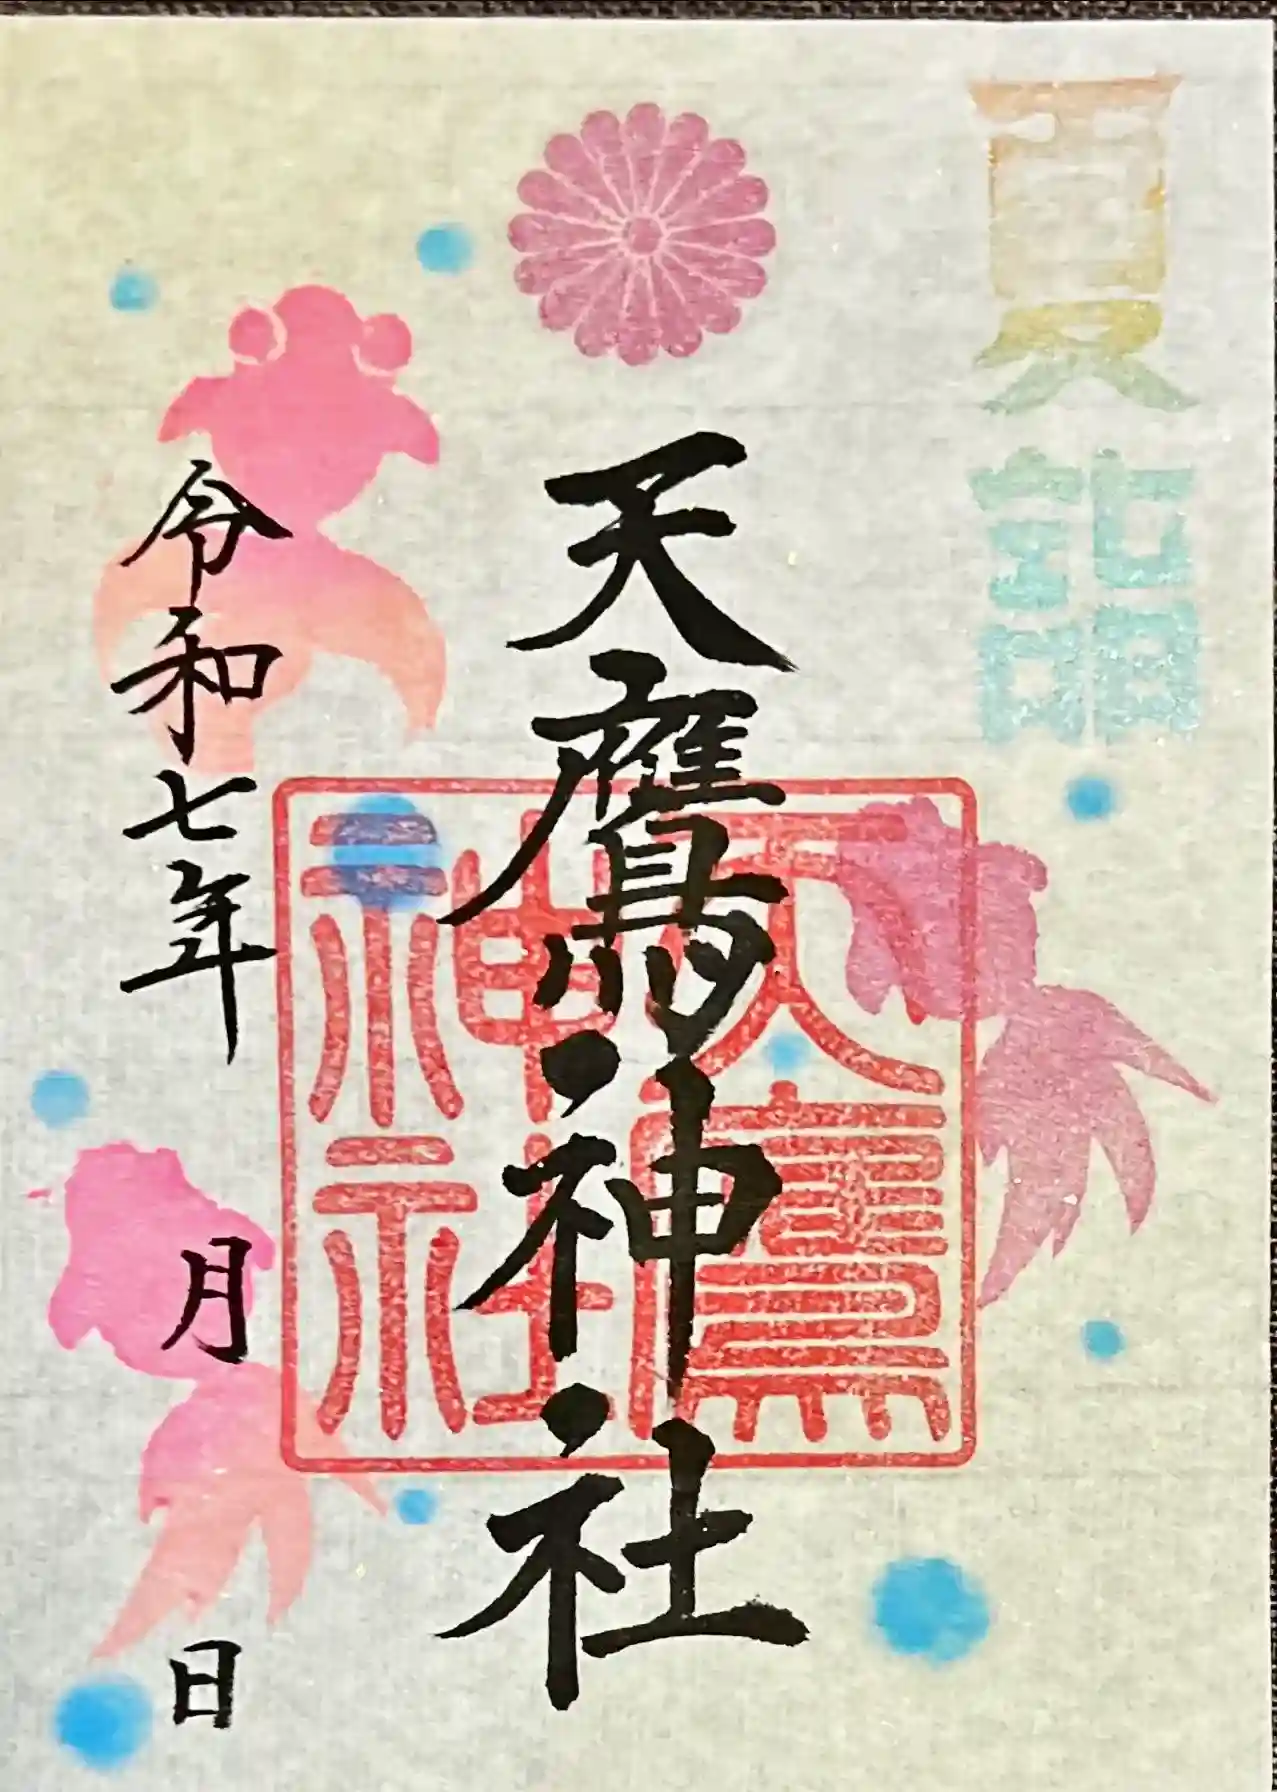 夏詣
天鷹神社
天鷹神社
令和七年
月
日